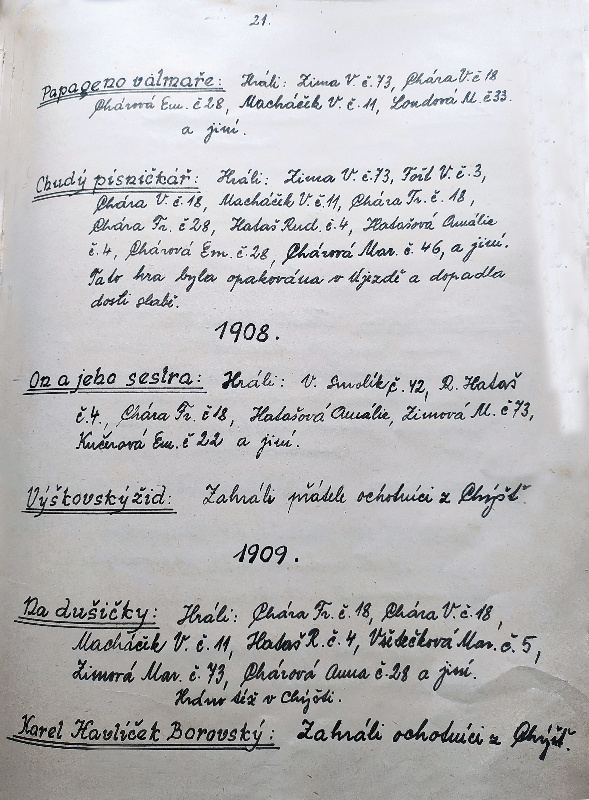 21.
Papageno válmaře: Hráli: Zima V. č. 73, Chára V. č 18
Chárová Em. č 28, Macháček V. č. 11, Londová M. č 33.
a jiní.
Chudý písničkář: Hráli: Zima V. č. 73, Tošl V. č. 3,
Chára V. č. 18, Macháček V. č. 11, Chára Fr. č. 18,
Chára Fr. č 28, Hataš Rud. č. 4, Hatašová Amálie
č. 4, Chárová Em. č. 28, Chárová Mar. č. 46, a jiní.
Tato hra byla opakována v Újezdě a dopadla
dosti slabě.
1908.
On a jeho sestra: Hráli: V. Smolík č. 42, R. Hataš
č. 4., Chára Fr. č 18, Hatašová Amálie, Zimová M. č 73,
Kučerová Em. č 22 a jiní.
Výškovský žid: Zahráli přátelé ochotníci z Chýšť.
1909.
Na dušičky: Hráli: Chára Fr. č. 18, Chára V. č. 18,
Macháček V. č. 11, Hataš R. č. 4, Všetečková Mar. č. 5,
Zimová Mar. č. 73, Chárová Anna č 28 a jiní.
Hráno též v Chýšti.
Karel Havlíček Borovský: Zahráli ochotníci z Chýšť.